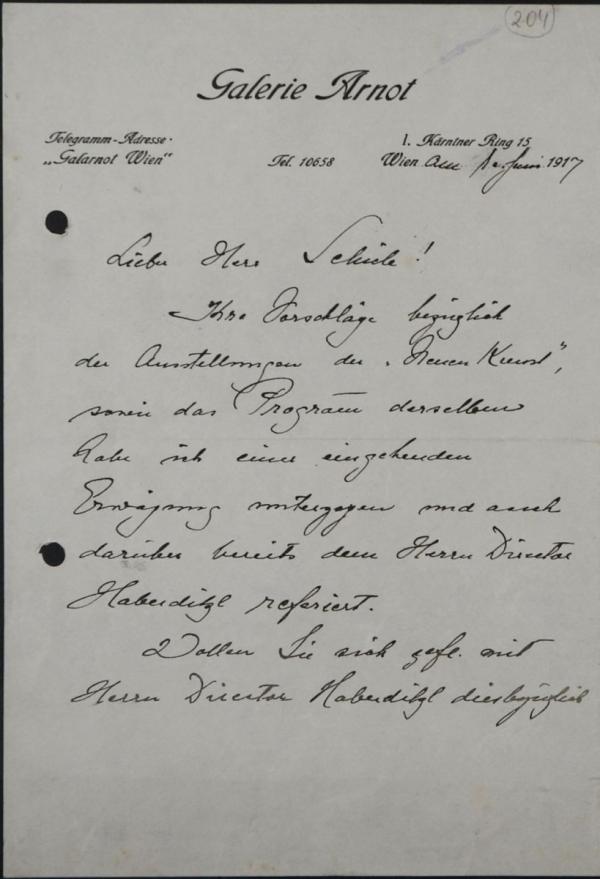 204
Galerie Arnot
Telegramm-Adresse·
„Galarnot Wien“
Tel. 10658
I. Kärntner Ring 15
Wien am 1. Juni 1917
Lieber Herr Schiele!
Ihre Vorschläge bezüglich
der Ausstellungen der „Neuen Kunst“,
sowie das Program̅ derselben
habe ich einer eingehenden
Erwägung unterzogen und auch
darüber bereits dem Herrn Director
Haberditzl referiert.
Wollen Sie sich gefl. mit
Herrn Director Haberditzl diesbezüglich